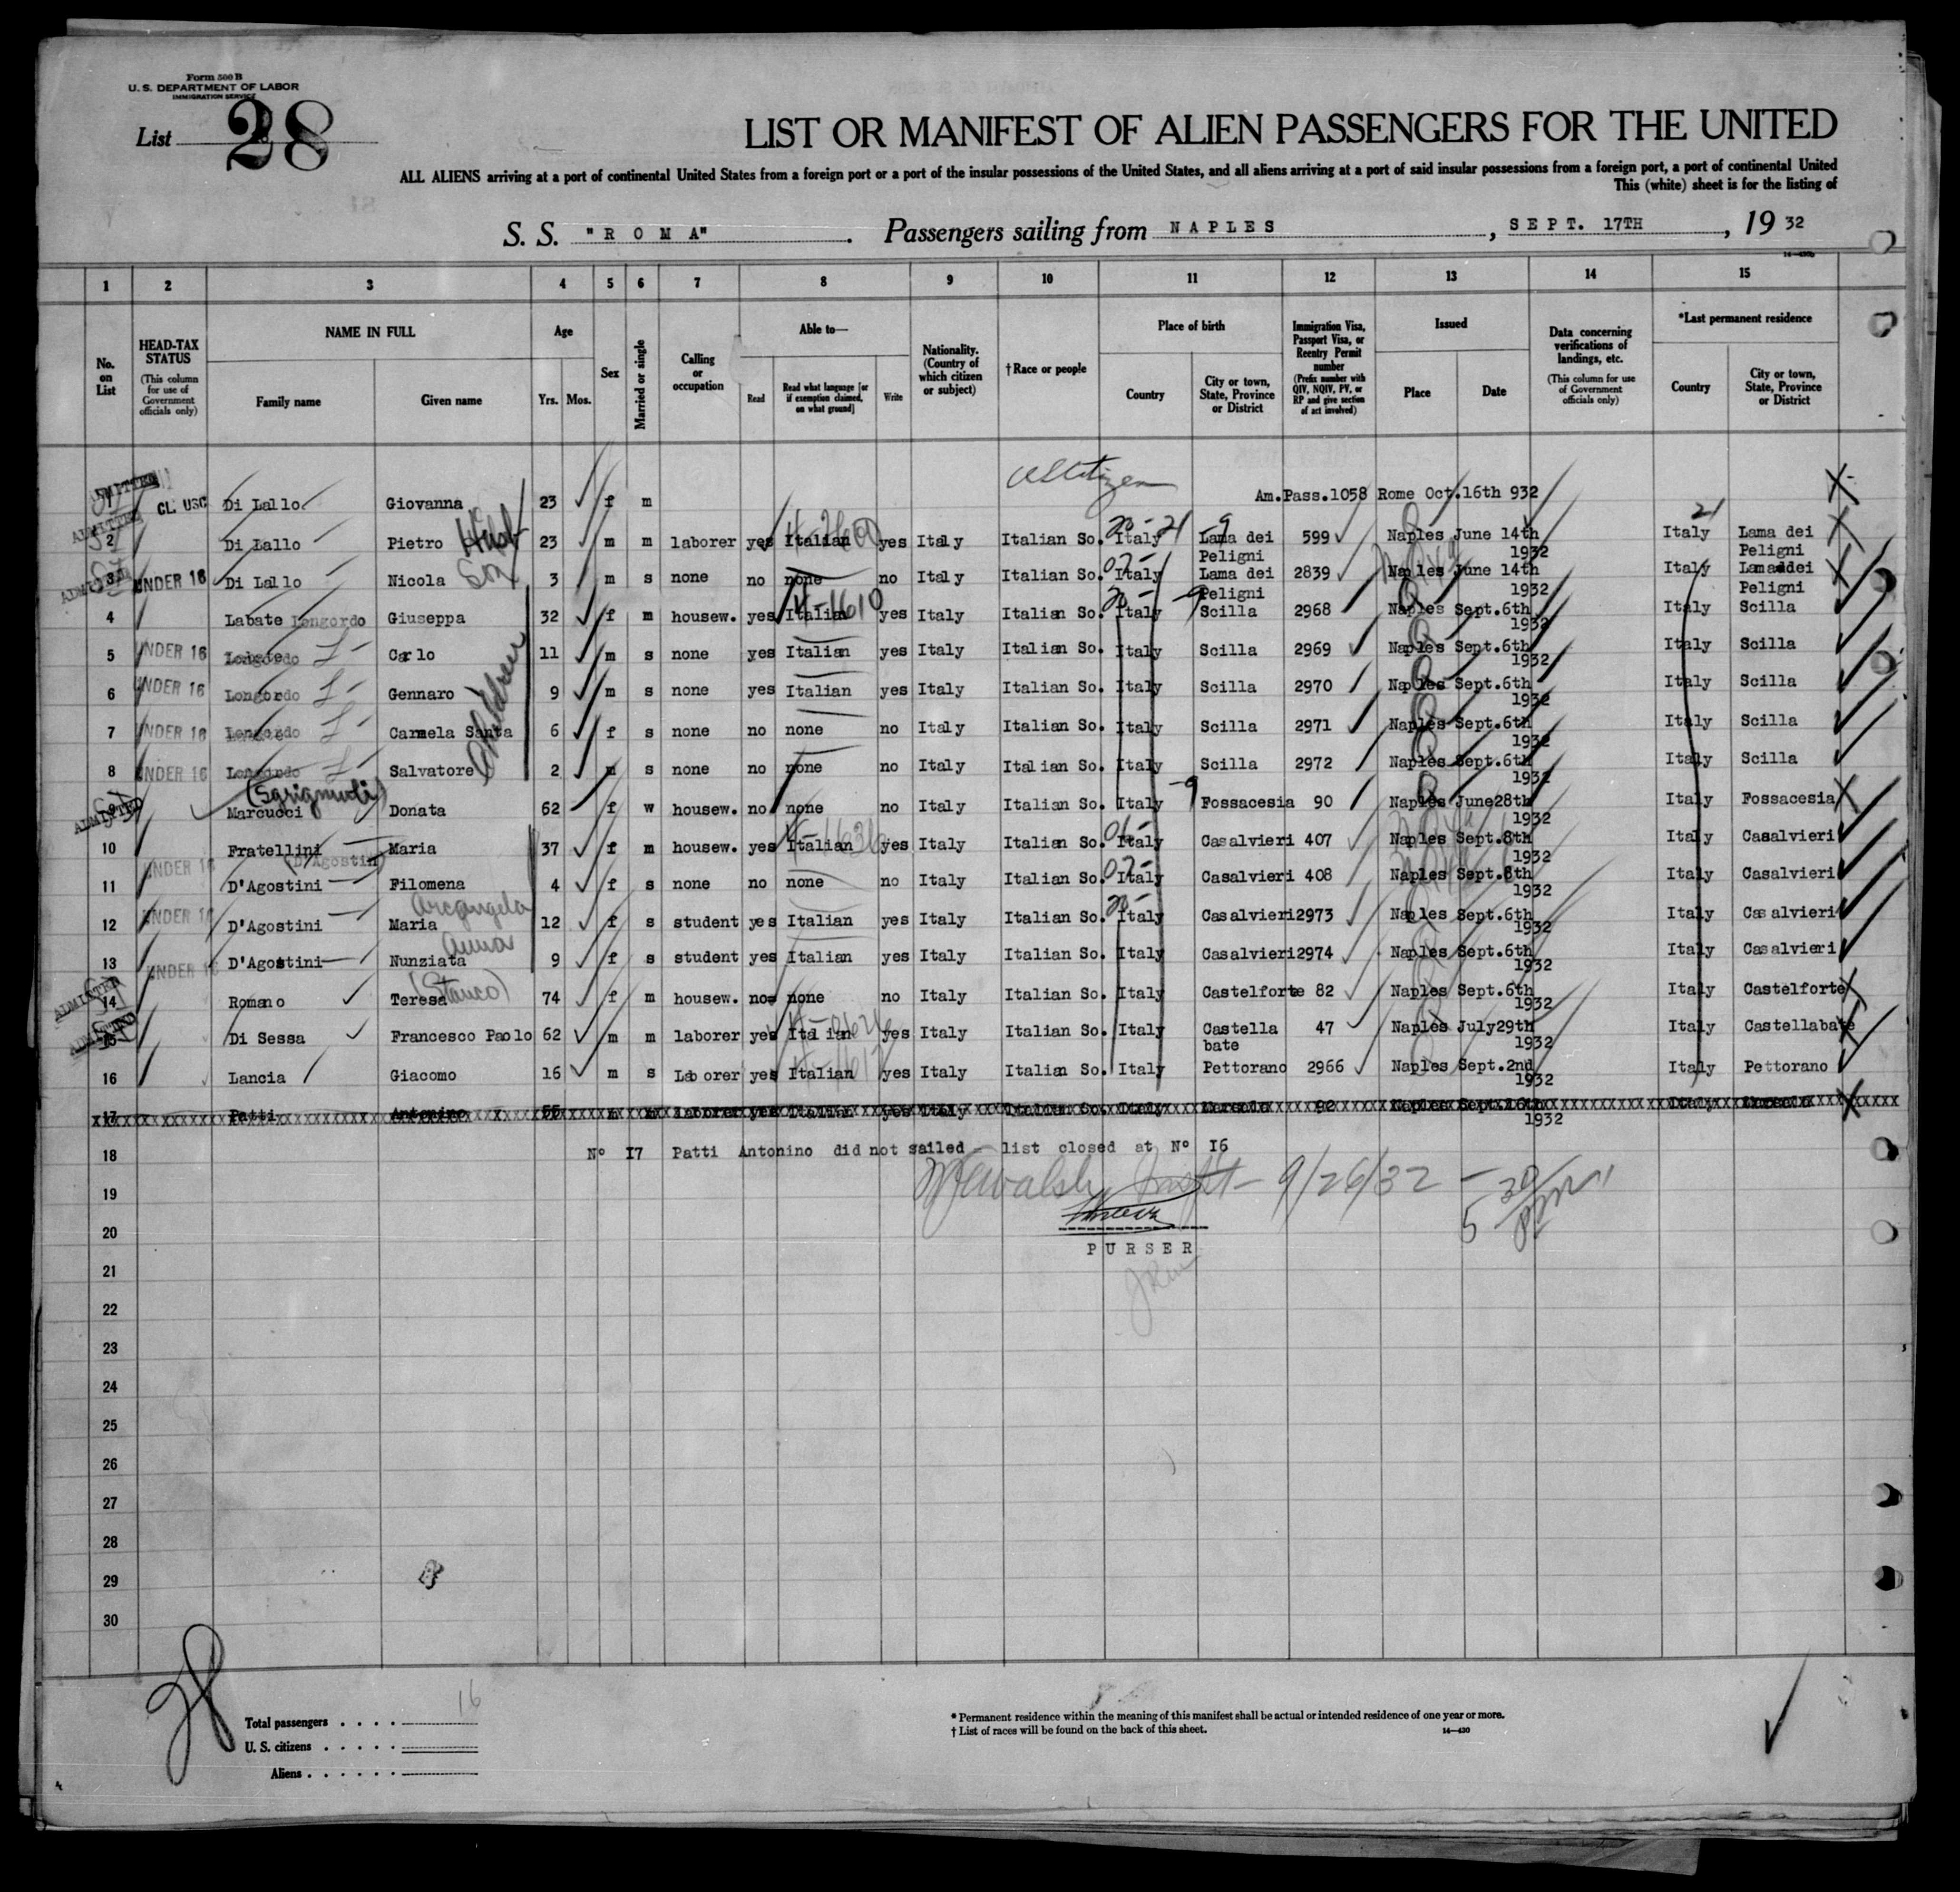 Form 500 B
U. S. DEPARTMENT OF LABOR
IMMIGRATION SERVICE
List 28
LIST OR MANIFEST OF ALIEN PASSENGERS FOR THE UNITED
ALL ALIENS arriving at a port of continental United States from a foreign port or a port of the insular possessions of the United States, and all aliens arriving at a port of said insular possessions from a foreign port, a port of continental United
This (white) sheet is for the listing of
S. S. "ROMA". Passengers sailing from NAPLES, SEPT. 17TH, 19 32
1 2 3 4 5 6 7 8 9 10 11 12 13 14 15
No. on List
HEAD-TAX STATUS (This column for use of Government officials only)
NAME IN FULL Family name Given name
Age Yrs. Mos.
Sex
Married or single
Calling or occupation
Able to— Read Read what language [or if exemption claimed, on what ground] Write
Nationality. (Country of which citizen or subject)
†Race or people
Place of birth Country City or town, State, Province or District
Immigration Visa, Passport Visa, or Reentry Permit number (Prefix number with QIV, NQIV, PV, or RP and give section of act involved)
Issued Place Date
Data concerning verifications of landings, etc. (This column for use of Government officials only)
*Last permanent residence Country City or town, State, Province or District
US Citizen
ADMITTED CL. USC Di Lallo Giovanna 23 f m Am.Pass.1058 Rome Oct.16th 932
ADMITTED 2 Di Lallo Pietro Husb 23 m m laborer yes Italian yes Italy Italian So. Italy Lama dei Peligni 599 Naples June 14th 1932 Italy Lama dei Peligni
ADMITTED 3 UNDER 16 Di Lallo Nicola Son 3 m s none no none no Italy Italian So. Italy Lama dei Peligni 2839 Naples June 14th 1932 Italy Lama dei Peligni
4 Labate Longordo Giuseppa 32 f m housew. yes Italian yes Italy Italian So. Italy Scilla 2968 Naples Sept.6th 1932 Italy Scilla
5 UNDER 16 Longordo Carlo 11 m s none yes Italian yes Italy Italian So. Italy Scilla 2969 Naples Sept.6th 1932 Italy Scilla
Children
6 UNDER 16 Longordo Gennaro 9 m s none yes Italian yes Italy Italian So. Italy Scilla 2970 Naples Sept.6th 1932 Italy Scilla
7 UNDER 16 Longordo Carmela Santa 6 f s none no none no Italy Italian So. Italy Scilla 2971 Naples Sept.6th 1932 Italy Scilla
8 UNDER 16 Longordo Salvatore 2 m s none no none no Italy Italian So. Italy Scilla 2972 Naples Sept.6th 1932 Italy Scilla
ADMITTED Marcucci Donata 62 f w housew. no none no Italy Italian So. Italy Fossacesia 90 Naples June28th 1932 Italy Fossacesia
10 Fratellini (D'Agostini) Maria 37 f m housew. yes Italian yes Italy Italian So. Italy Casalvieri 407 Naples Sept.8th 1932 Italy Casalvieri
11 UNDER 16 D'Agostini Filomena 4 f s none no none no Italy Italian So. Italy Casalvieri 408 Naples Sept.8th 1932 Italy Casalvieri
12 UNDER 16 D'Agostini Maria Arcangela 12 f s student yes Italian yes Italy Italian So. Italy Casalvieri2973 Naples Sept.6th 1932 Italy Casalvieri
13 UNDER 16 D'Agostini Nunziata Anna 9 f s student yes Italian yes Italy Italian So. Italy Casalvieri2974 Naples Sept.6th 1932 Italy Casalvieri
ADMITTED 14 Romano Teresa (Stanco) 74 f m housew. no none no Italy Italian So. Italy Castelforte 82 Naples Sept.6th 1932 Italy Castelforte
15 Di Sessa Francesco Paolo 62 m m laborer yes Italian yes Italy Italian So. Italy Castella bate 47 Naples July29th 1932 Italy Castellabate
16 Lancia Giacomo 16 m s Laborer yes Italian yes Italy Italian So. Italy Pettorano 2966 Naples Sept.2nd 1932 Italy Pettorano
17 Patti Antonino 55 m m laborer yes Italian yes Italy Italian So. Italy Marsala 92 Naples Sept.16th 1932 Italy Marsala
18 Nº I7 Patti Antonino did not sailed - list closed at Nº I6
19 Walsh Inspt - 9/26/32 - 5 30 PM
20
PURSER
21
22
23
24
25
26
27
28
29
30
28
Total passengers . . . . 16
U. S. citizens . . . . .
Aliens . . . . . .
* Permanent residence within the meaning of this manifest shall be actual or intended residence of one year or more.
† List of races will be found on the back of this sheet. 14—430